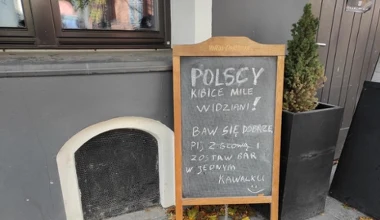 POLSCY
KIBICE MILE
WIDZIANI!
BAW SIĘ DOBRZE
PIJ Z GŁOWĄ I
ZOSTAW BAR
W JEDNYM
KAWAŁKU